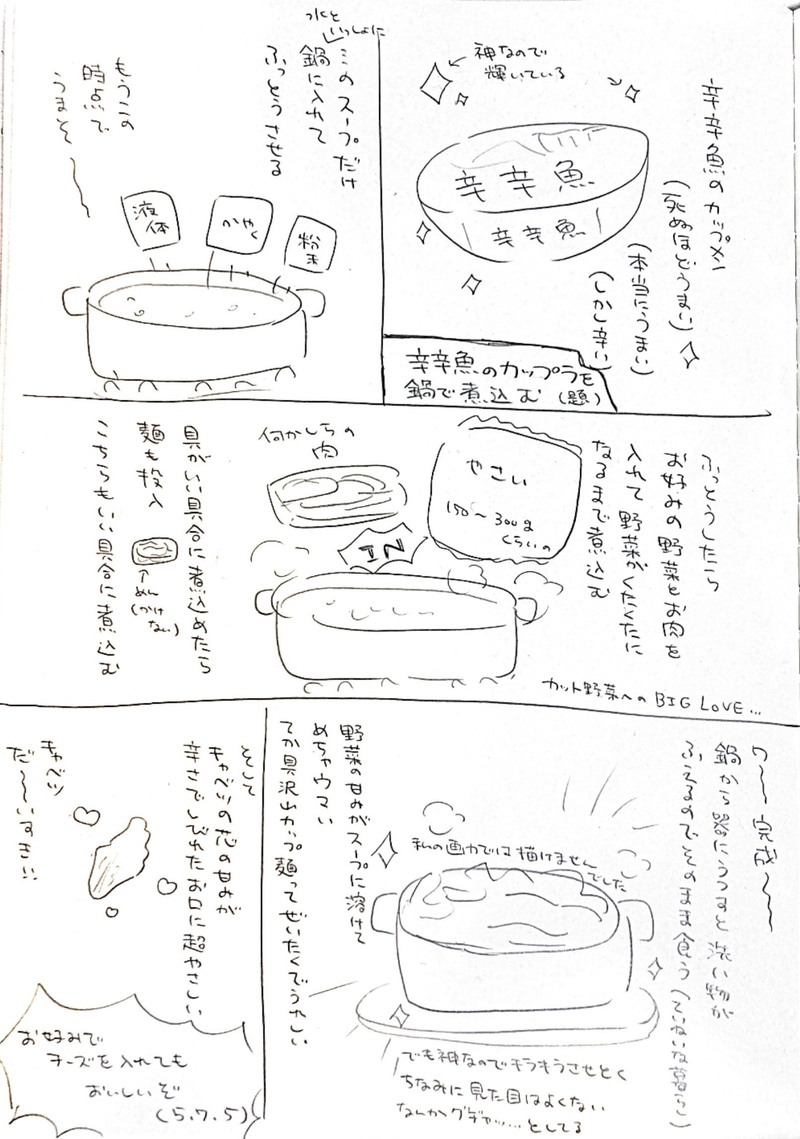 辛辛魚のカップメン
(死ぬほどうまい)
(本当にうまい)
(しかし辛い)
神なので
輝いている
辛辛魚
辛辛魚
辛辛魚のカップラを
鍋で煮込む(題)
水と
いっしょに
ミのスープだけ
鍋に入れて
ふっとうさせる
もうこの
時点で
うまそ〜
粉末
かやく
液体
ふっとうしたら
お好みの野菜とお肉を
入れて野菜がくたくたに
なるまで煮込む
やさい
150〜300g
くらいの
何かしらの
肉
IN
カット野菜へのBIG LOVE…
具がいい具合に煮込めたら
麺も投入
めん
(かけない)
こちらもいい具合に煮込む
ワ〜〜完成〜〜
鍋から器にうつすと洗い物が
ふえるのでそのまま食う(ていねいな暮らし)
私の画力では描けません
でした
でも神なのでキラキラさせとく
ちなみに見た目はよくない
なんかグチャッ……としてる
野菜の甘みがスープに溶けて
めちゃウマい
てか具沢山カップ麺ってぜいたくでうれしい
そして
キャベツの芯の甘みが
辛さでしびれたお口に超やさしい
キャベツ
だ〜〜いすき!!
お好みで
チーズを入れても
おいしいぞ
(5.7.5)